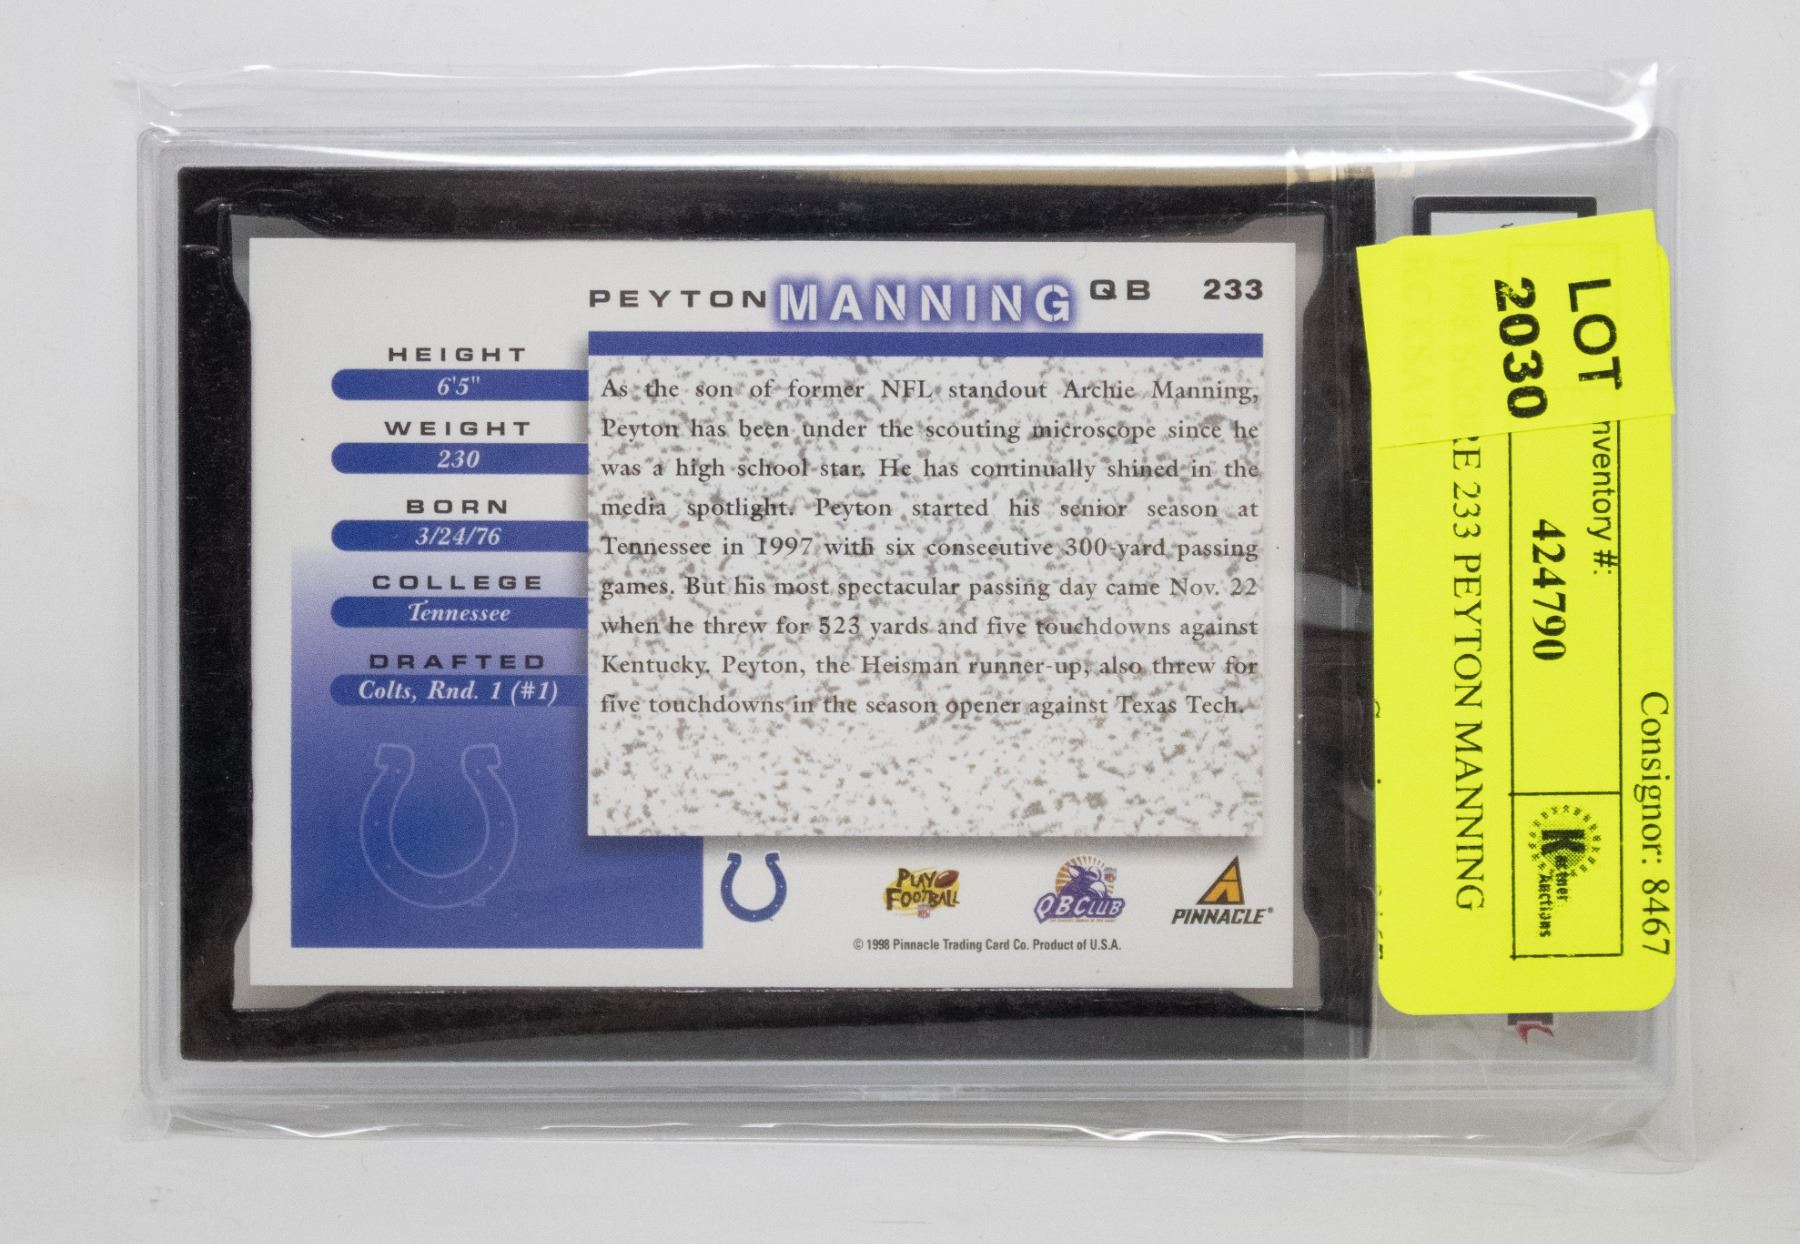 PEYTON MANNING QB 233
HEIGHT
6'5"
WEIGHT
230
BORN
3/24/76
COLLEGE
Tennessee
DRAFTED
Colts, Rnd. 1 (#1)
As the son of former NFL standout Archie Manning,
Peyton has been under the scouting microscope since he
was a high school star. He has continually shined in the
media spotlight. Peyton started his senior season at
Tennessee in 1997 with six consecutive 300-yard passing
games. But his most spectacular passing day came Nov. 22
when he threw for 523 yards and five touchdowns against
Kentucky. Peyton, the Heisman runner-up, also threw for
five touchdowns in the season opener against Texas Tech.
PLAY
FOOTBALL
QB CLUB
PINNACLE®
© 1998 Pinnacle Trading Card Co. Product of U.S.A.
Consignor: 8467
LOT
2030
nventory #:
424790
Auctions
RE 233 PEYTON MANNING